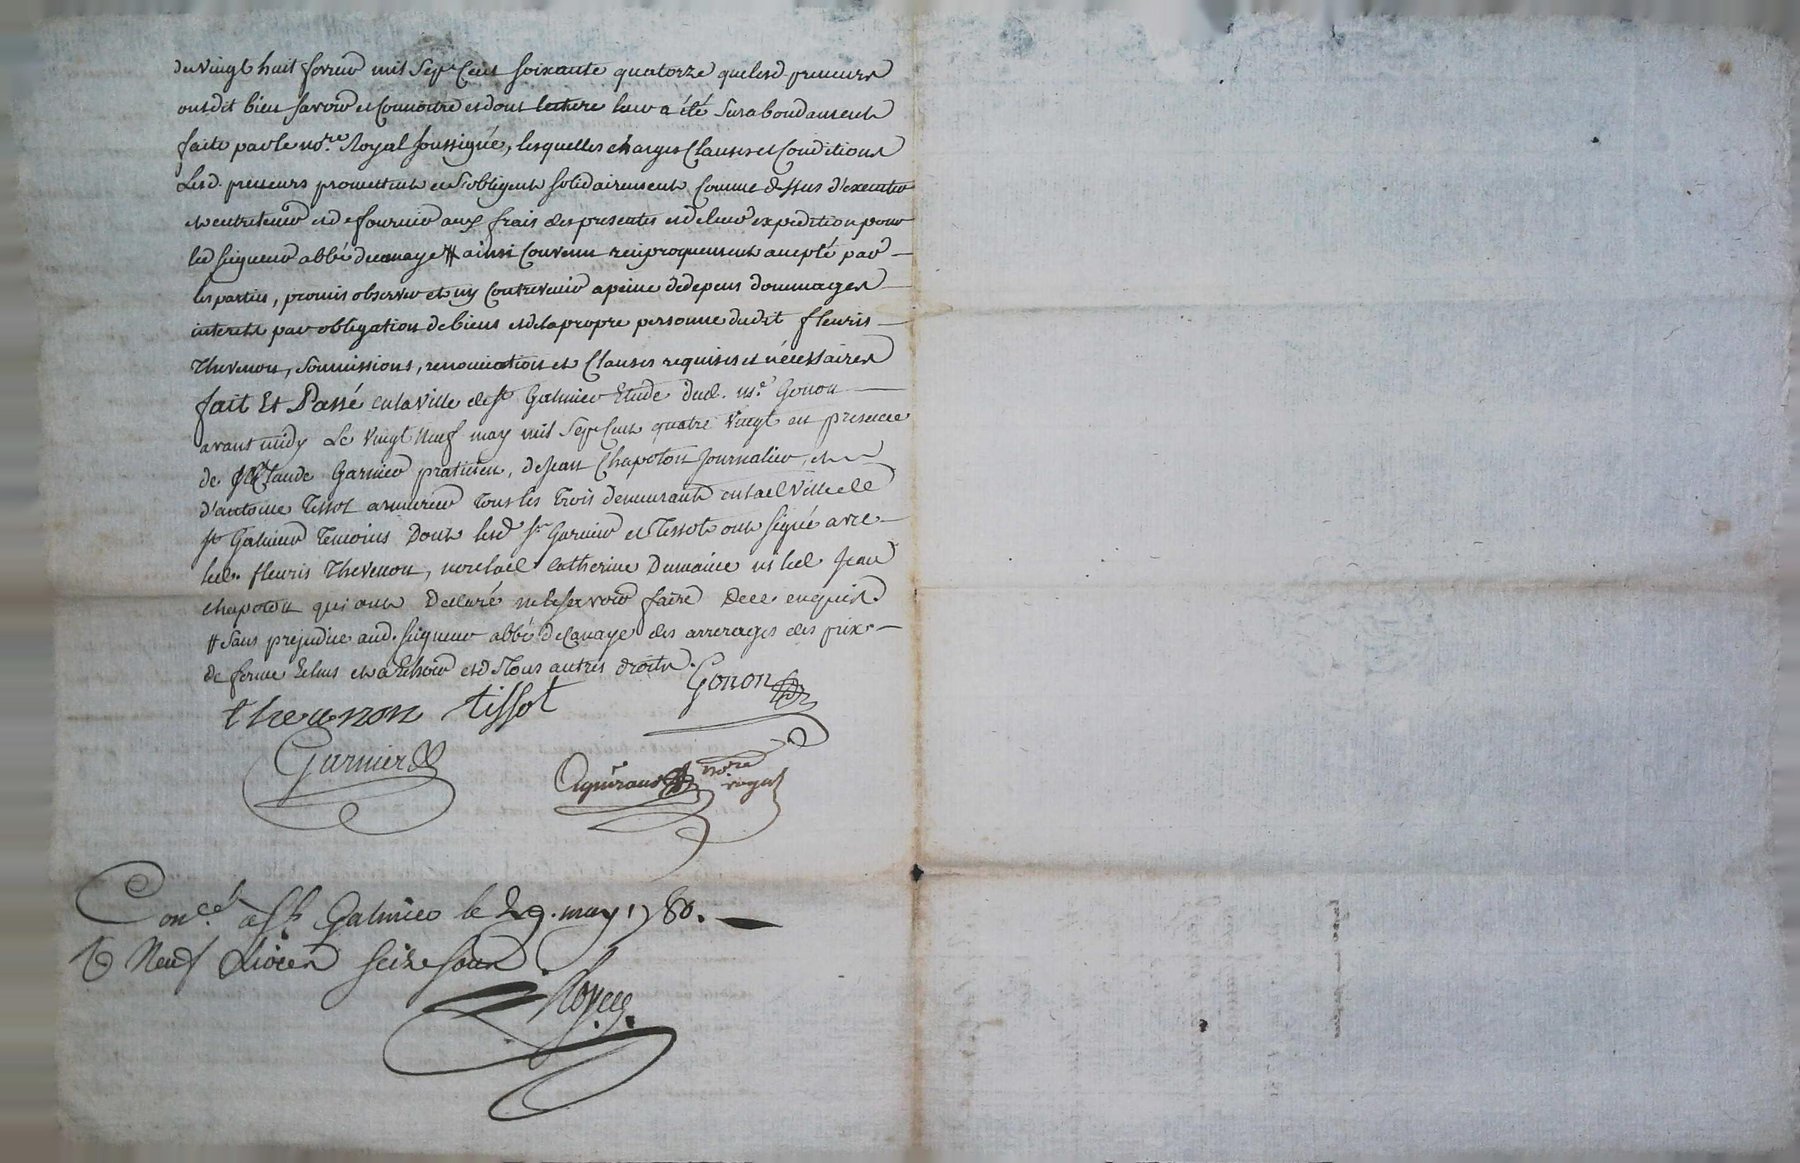 du vingt huit fevrier mil Sept Cent soixante quatorze que lesd. preneurs
ont dit bien savoir et Connoitre et dont lecture leur a été Surabondament
faite par le no.re Royal soussigné, lesquelles charges Clauses et Conditions
Lesd. preneurs promettent et s'obligent solidairement Comme dessus d'executer
et entretenir et de fournir aux frais des presentes et de leur expedition pour
led seigneur abbé decanaye # ainsi Convenu reciproquement accepté par
les parties, promis observer et ny Contrevenir a peine de depens dommages
interets par obligation de biens et de la propre personne dudit fleuris
Thevenon, soumissions, renonciation et Clauses requises et nécessaires
fait Et Passé en la ville de st Galmier Etude dud. me. Gonon
avant midy Le Vingt Neuf may mil Sept Cent quatre Vingt en presence
de Sr Claude Garnier praticien, de Jean Chapoton Journalier, et
d'antoine Tissot armurier tous les trois demeurants en lad Ville de
st Galmier temoins Dont lesd Sr Garnier et Tissot ont signé avec
led. fleuris Thevenon, non lad. Catherine Dumaine ni led Jean
chapoton qui ont Declaré ne le scavoir faire De ce enquis.
# Sans prejudice aud. seigneur abbé de Canaye des arrerages des prix
de ferme Echus et a Echoir et de Tous autres droits.
thevenon tissot Gonon
Garnier
no.re royal
Con.ee a St Galmier le 29. may 1780.
R Neuf Livres seize sous